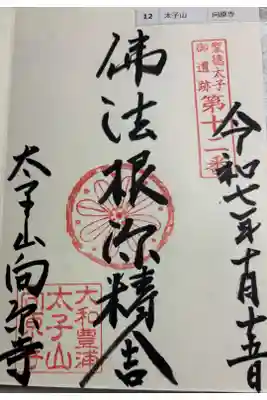 12 太子山 向原寺
令和七年十月十五日
聖徳太子
御遺跡
第十二番
佛法根源精舎
太子山向原寺
大和豊浦
太子山
向原寺